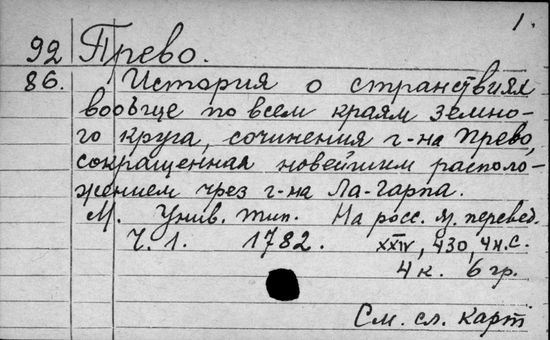 1.
92 Прево.
86. История о странствиях
вообще по всем краям земно-
го круга, сочинения г-на Прево,
сокращенная новейшим располо-
жением чрез г-на Ла-Гарпа.
М. Унив. тип. На росс. яз. перевед.
Ч. 1. 1782. XXIV, 430, 4 н.с.
4 к. 6 гр.
См. сл. карт